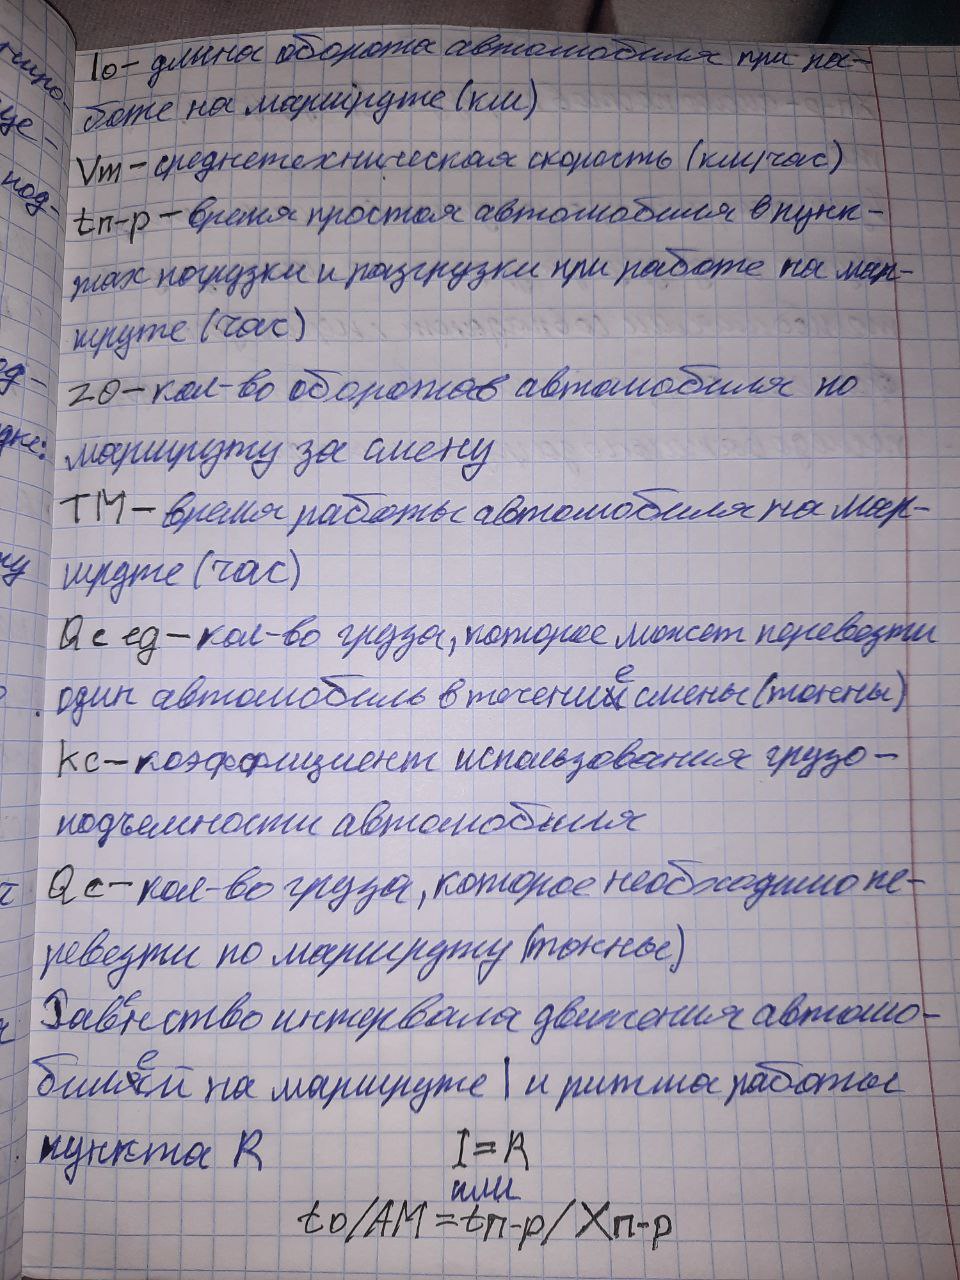 lo - длина оборота автомобиля при ра-
боте на маршруте (км)
Vт - среднетехническая скорость (км/час)
tп-р - время простоя автомобиля в пунк-
тах погрузки и разгрузки при работе на мар-
шруте (час)
zo - кол-во оборотов автомобиля по
маршруту за смену
TM - время работы автомобиля на мар-
шруте (час)
Qc ед - кол-во груза, которое может перевезти
один автомобиль в течение смены (тонны)
kc - коэффициент использования грузо-
подъемности автомобиля
Qc - кол-во груза, которое необходимо пе-
ревезти по маршруту (тонны)
Равенство интервала движения автомо-
билей на маршруте I и ритма работы
пункта R
I = R
или
to/AM = tп-р/Xп-р